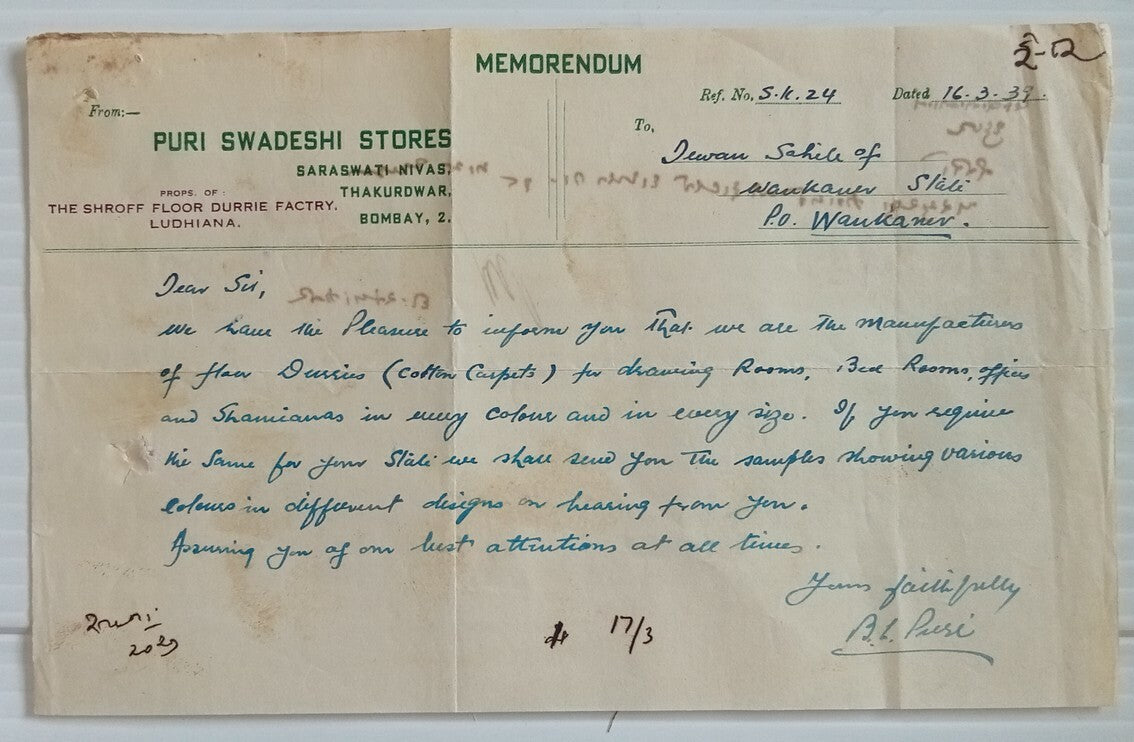 MEMORENDUM
From:—
Ref. No. S.K. 24
Dated 16.3.39.
PURI SWADESHI STORES
SARASWATI NIVAS,
THAKURDWAR,
BOMBAY, 2.
PROPS. OF :
THE SHROFF FLOOR DURRIE FACTRY.
LUDHIANA.
To,
Dewan Sahib of
Wankaner State
P.O. Wankaner.
Dear Sir,
We have the Pleasure to inform you that we are the manufacturers
of floor Durries (Cotton Carpets) for drawing Rooms, Bed Rooms, offices
and Shamianas in every colour and in every size. If you require
the same for your State we shall send you the samples showing various
colours in different designs on hearing from you.
Assuring you of our best attentions at all times.
Yours faithfully
B.L. Puri
17/3